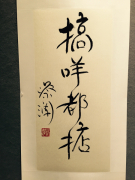 搞咩都掂
蔡瀾